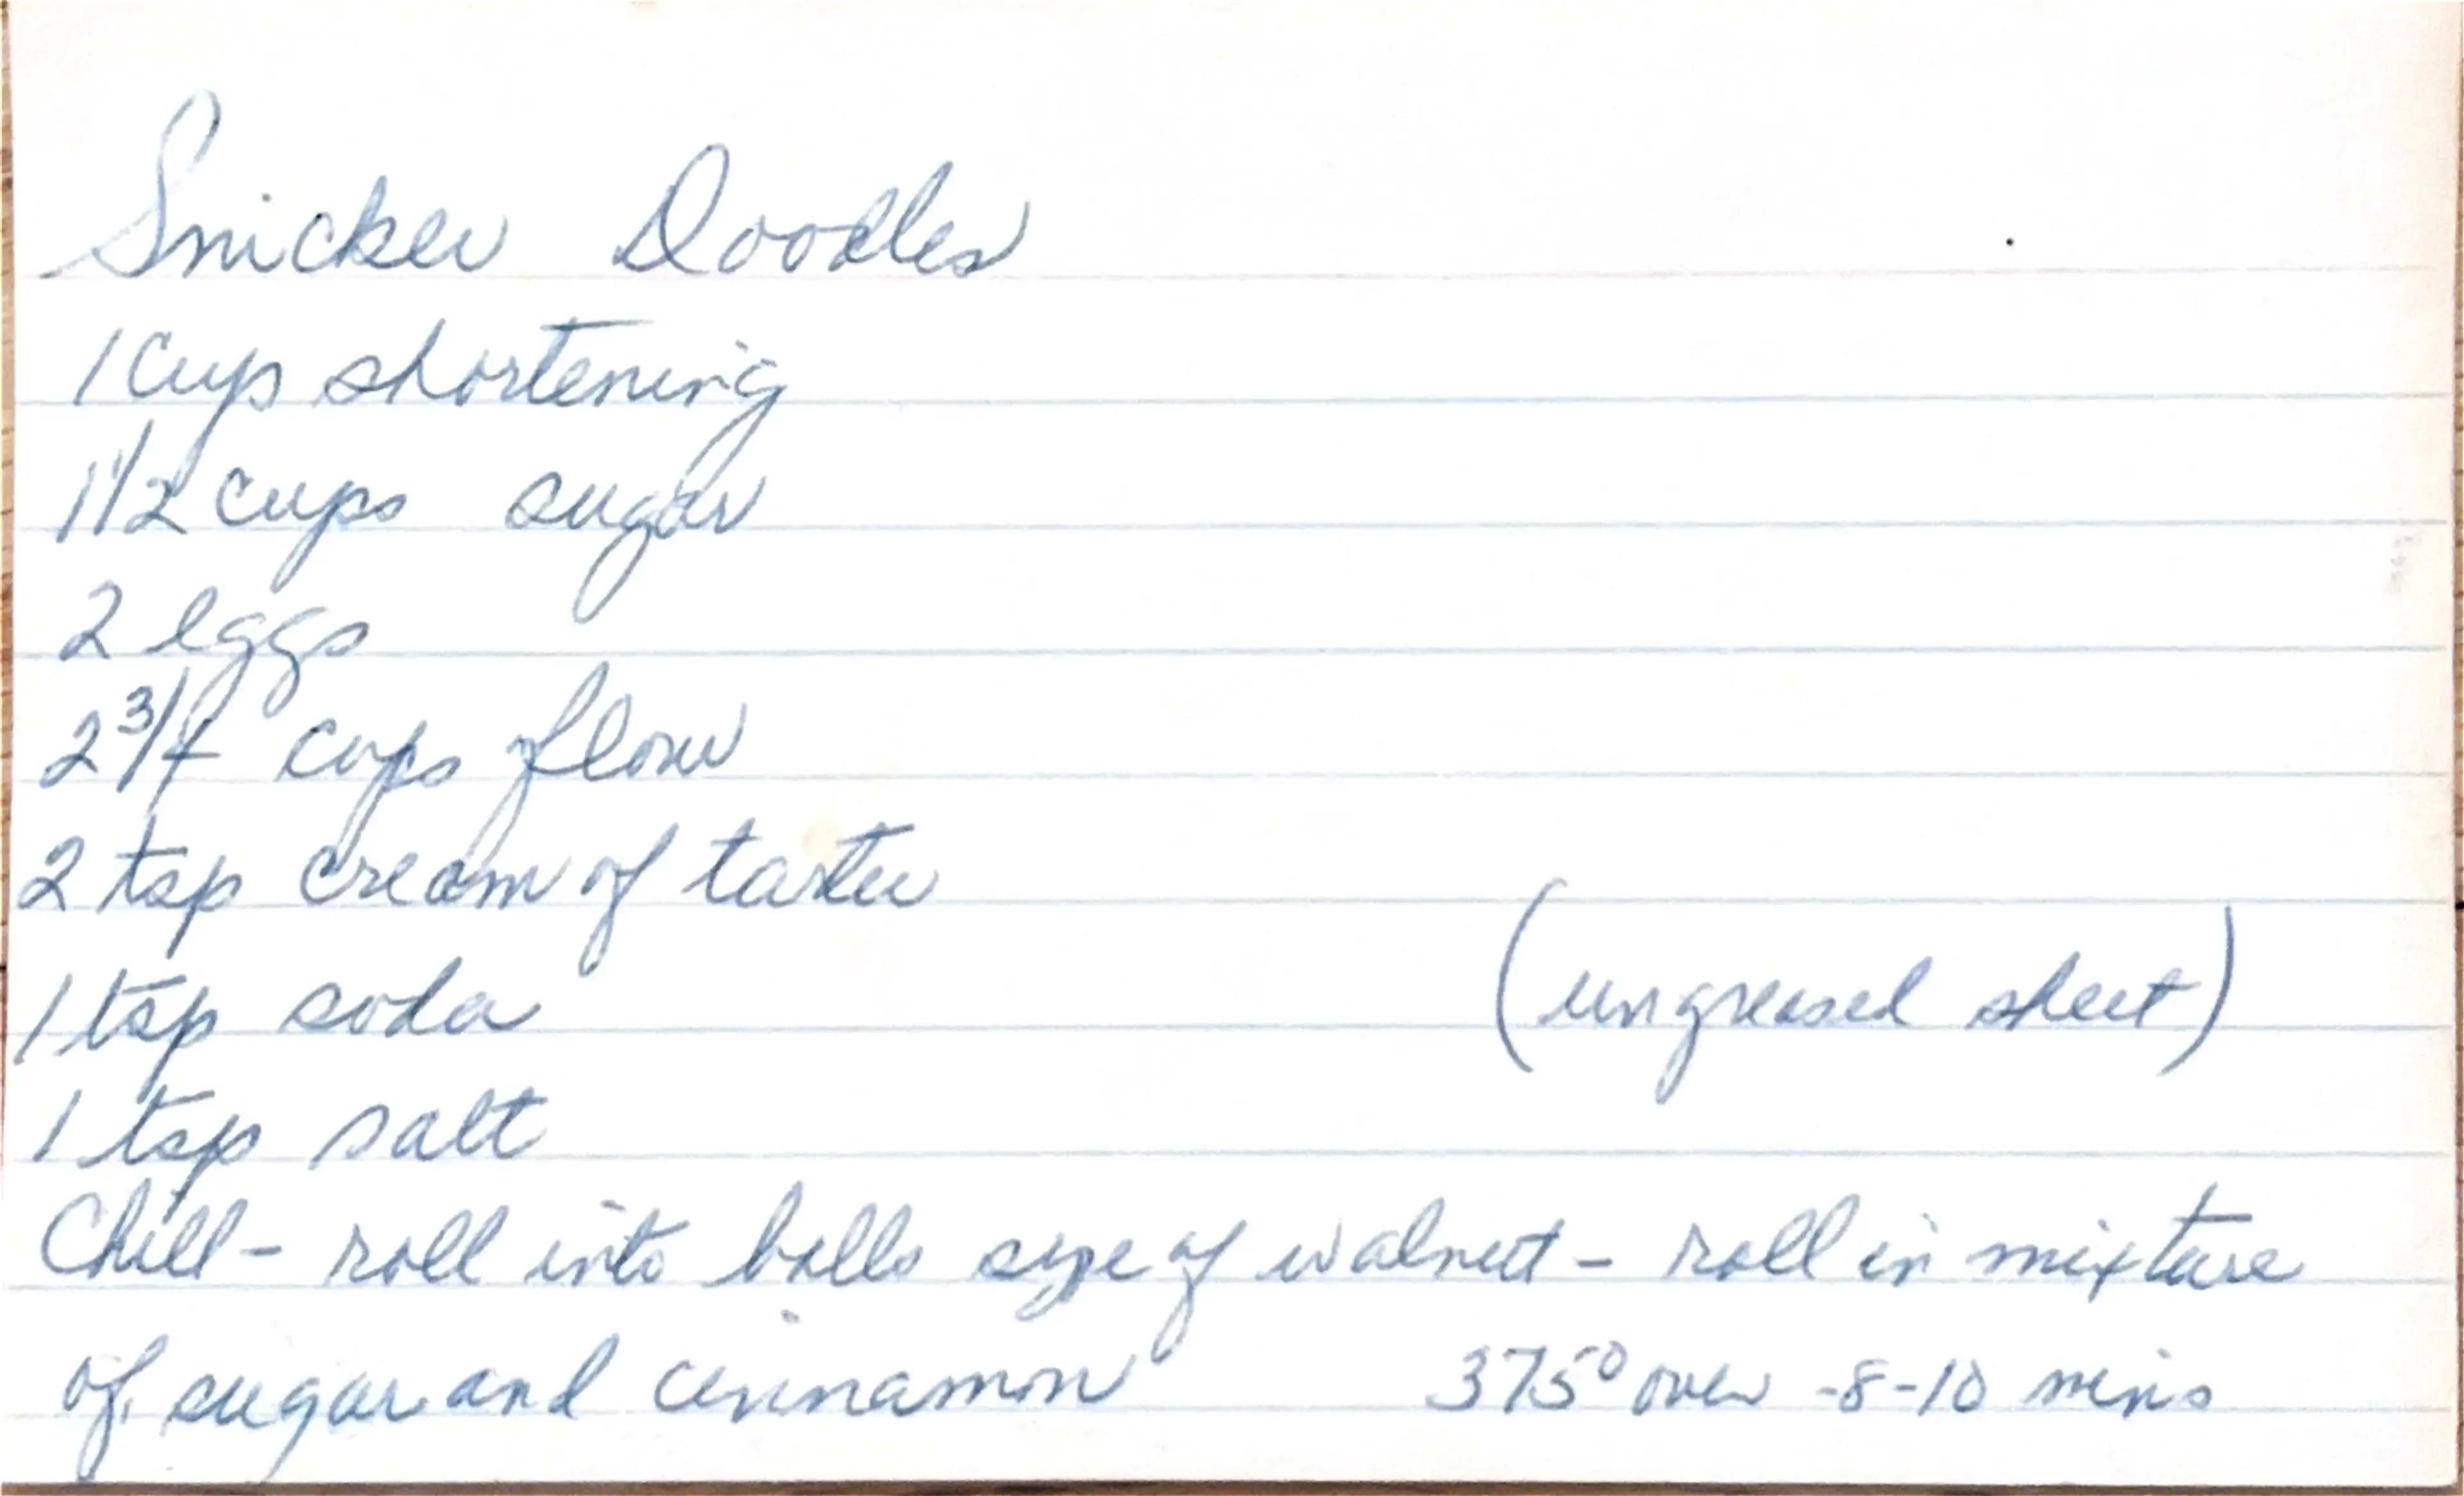 Snicker Doodles
1 cup shortening
1 1/2 cups sugar
2 eggs
2 3/4 cups flour
2 tsp cream of tarter
1 tsp soda
(ungreased sheet)
1 tsp salt
Chill - roll into balls size of walnut - roll in mixture
of sugar and cinnamon 375° oven - 8-10 mins